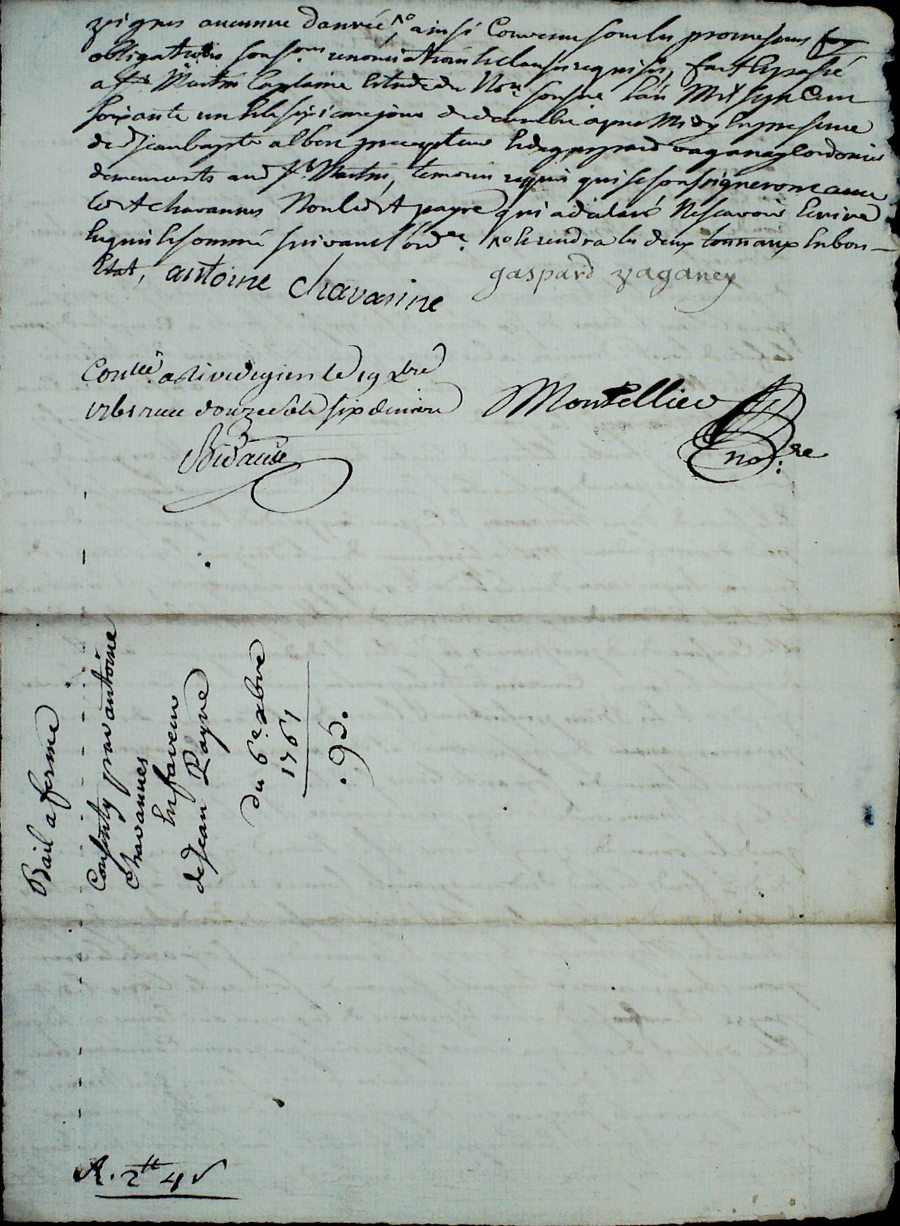 vignes aucunne danrée, No ainsi convenu sous les promesses
obligations sous.ons renonciations et clauses requises, fait et passé
a St Martin laplaine Etude du No.re soussigné l'an Mil sept Cent
soixante un et le six.ieme jour de decembre apres Midy En presence
de Sr jean bapte albert precepteur et de gaspard vaganey Cordonier
demeurants aud. St. Martin, temoins requis qui se soussigneront avec
led.t chavannes Non led.t payre qui a declaré Ne scavoir Ecrire
Enquis et sommé suivant l'ord.ce No Et rendra les deux tonnaux En bon
Etat, antoine Chavanne gaspard vaganey
Con.llé a Rivedegier le 19 Xbre
1761 receu douze sols six deniers Montellier
no.re
Bail a ferme
Consenty par antoine
Chavannes
En faveur
de Jean Payre
du 6.e Xbre
1761
.96.
R. 2tt 4s